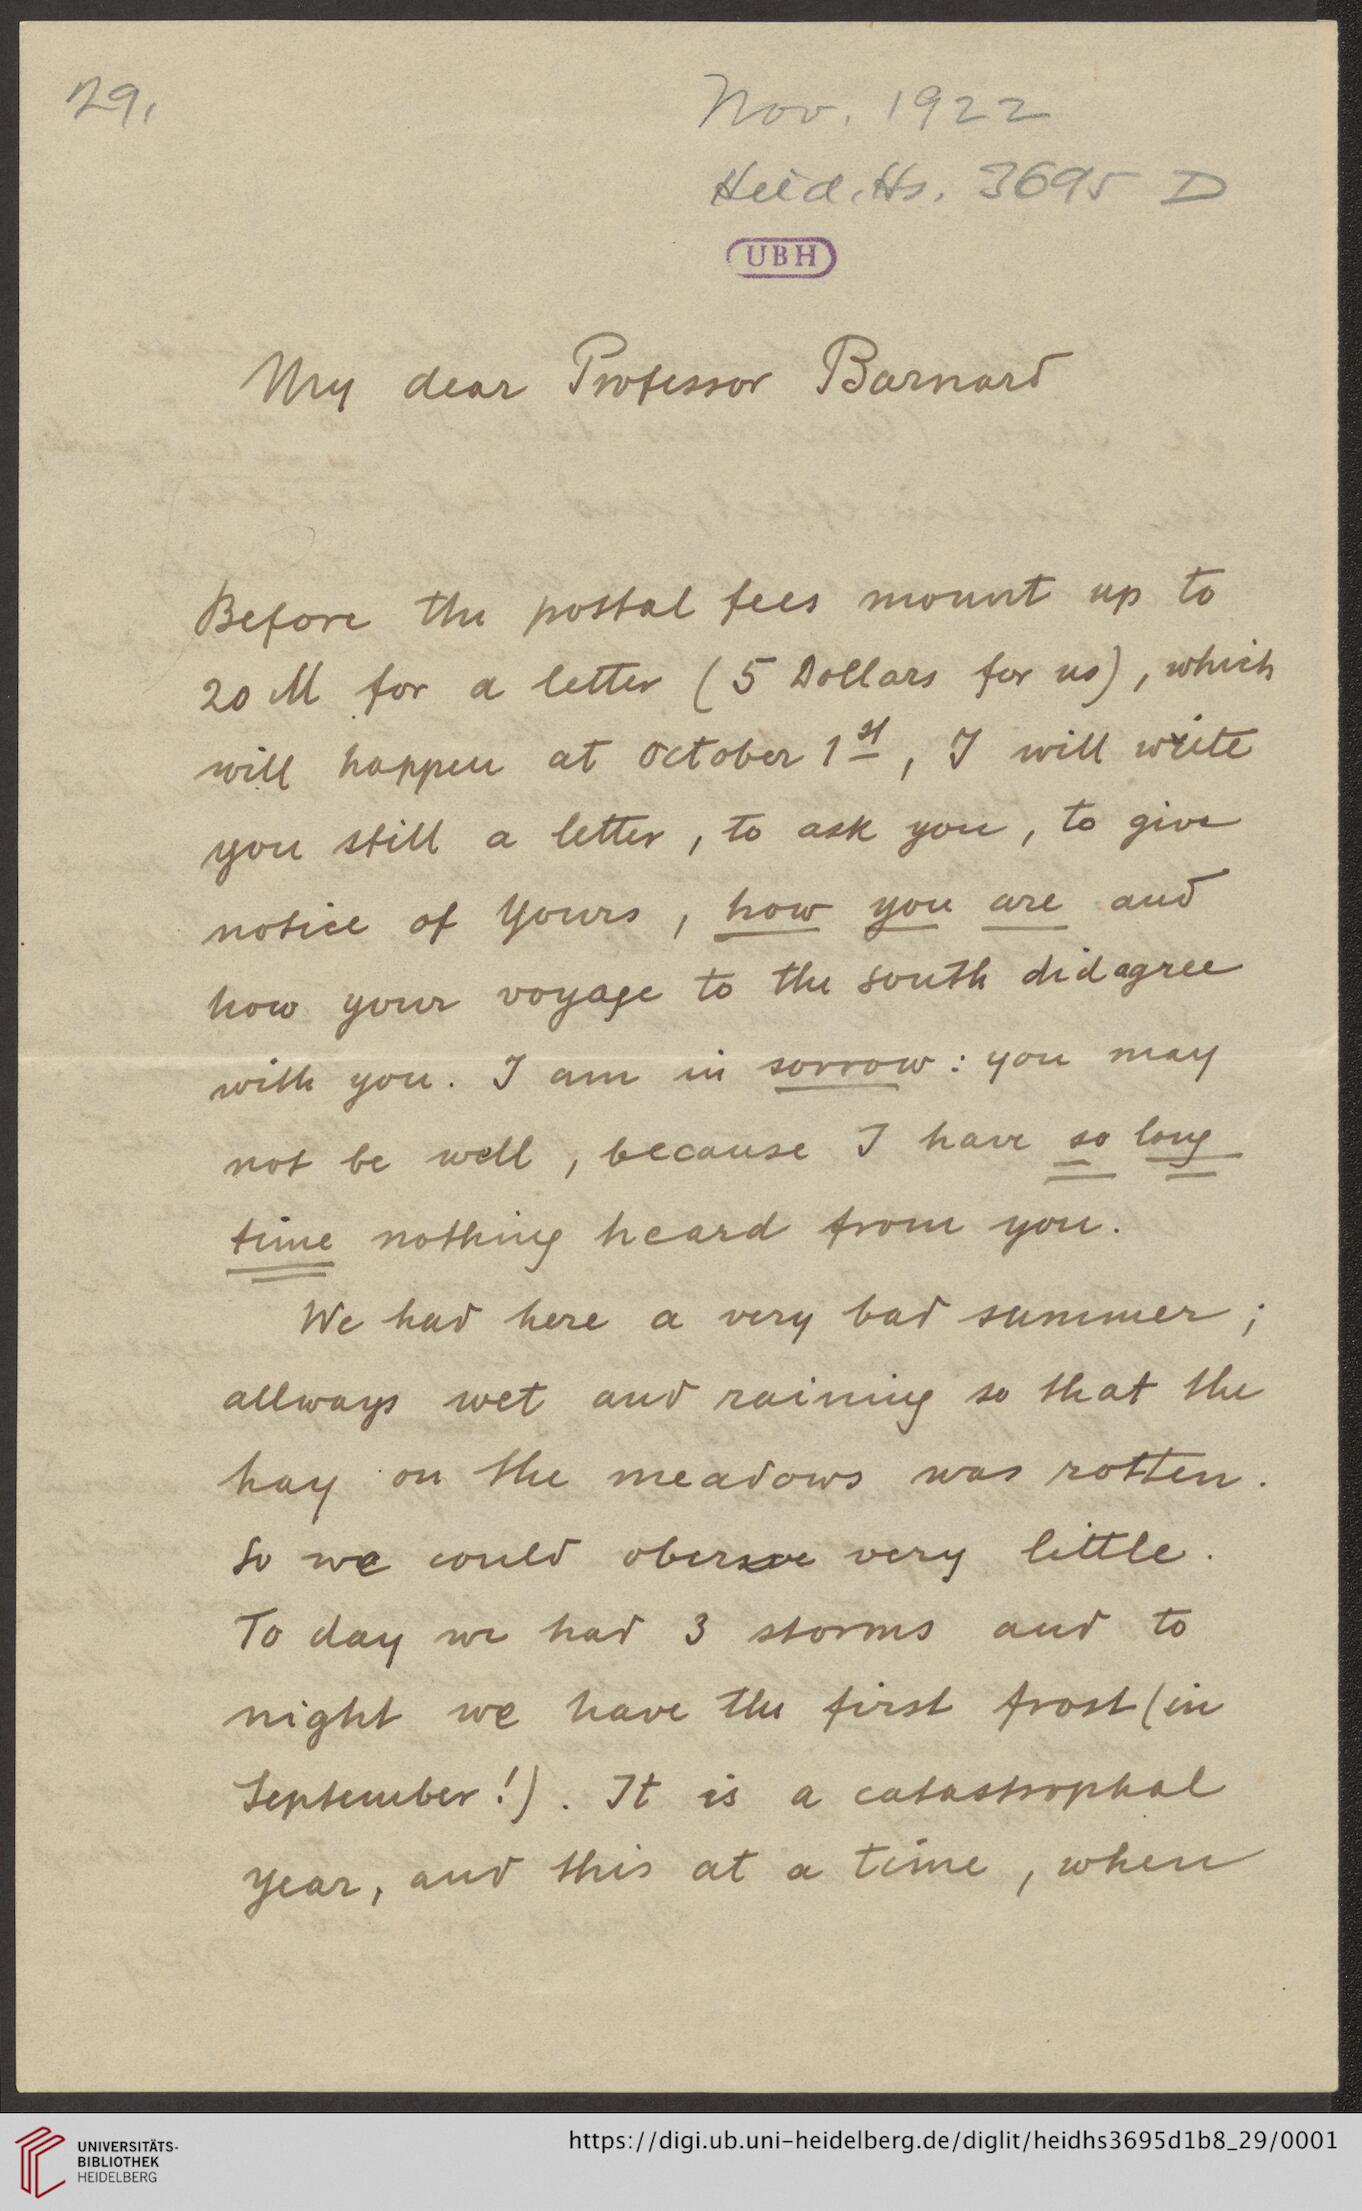 29.
Nov. 1922
Heid. Hs. 3695 D
UBH
My dear Professor Barnard
Before the postal fees mount up to
20 M for a letter (5 Dollars for us), which
will happen at October 1st, I will write
you still a letter, to ask you, to give
notice of Yours, how you are and
how your voyage to the south did agree
with you. I am in sorrow: you may
not be well, because I have so long
time nothing heard from you.
We had here a very bad summer;
allways wet and raining so that the
hay on the meadows was rotten.
So we could oberve very little.
To day we had 3 storms and to
night we have the first frost (in
September!). It is a catastrophal
year, and this at a time, when
UNIVERSITÄTS-
BIBLIOTHEK
HEIDELBERG
https://digi.ub.uni-heidelberg.de/diglit/heidhs3695d1b8_29/0001